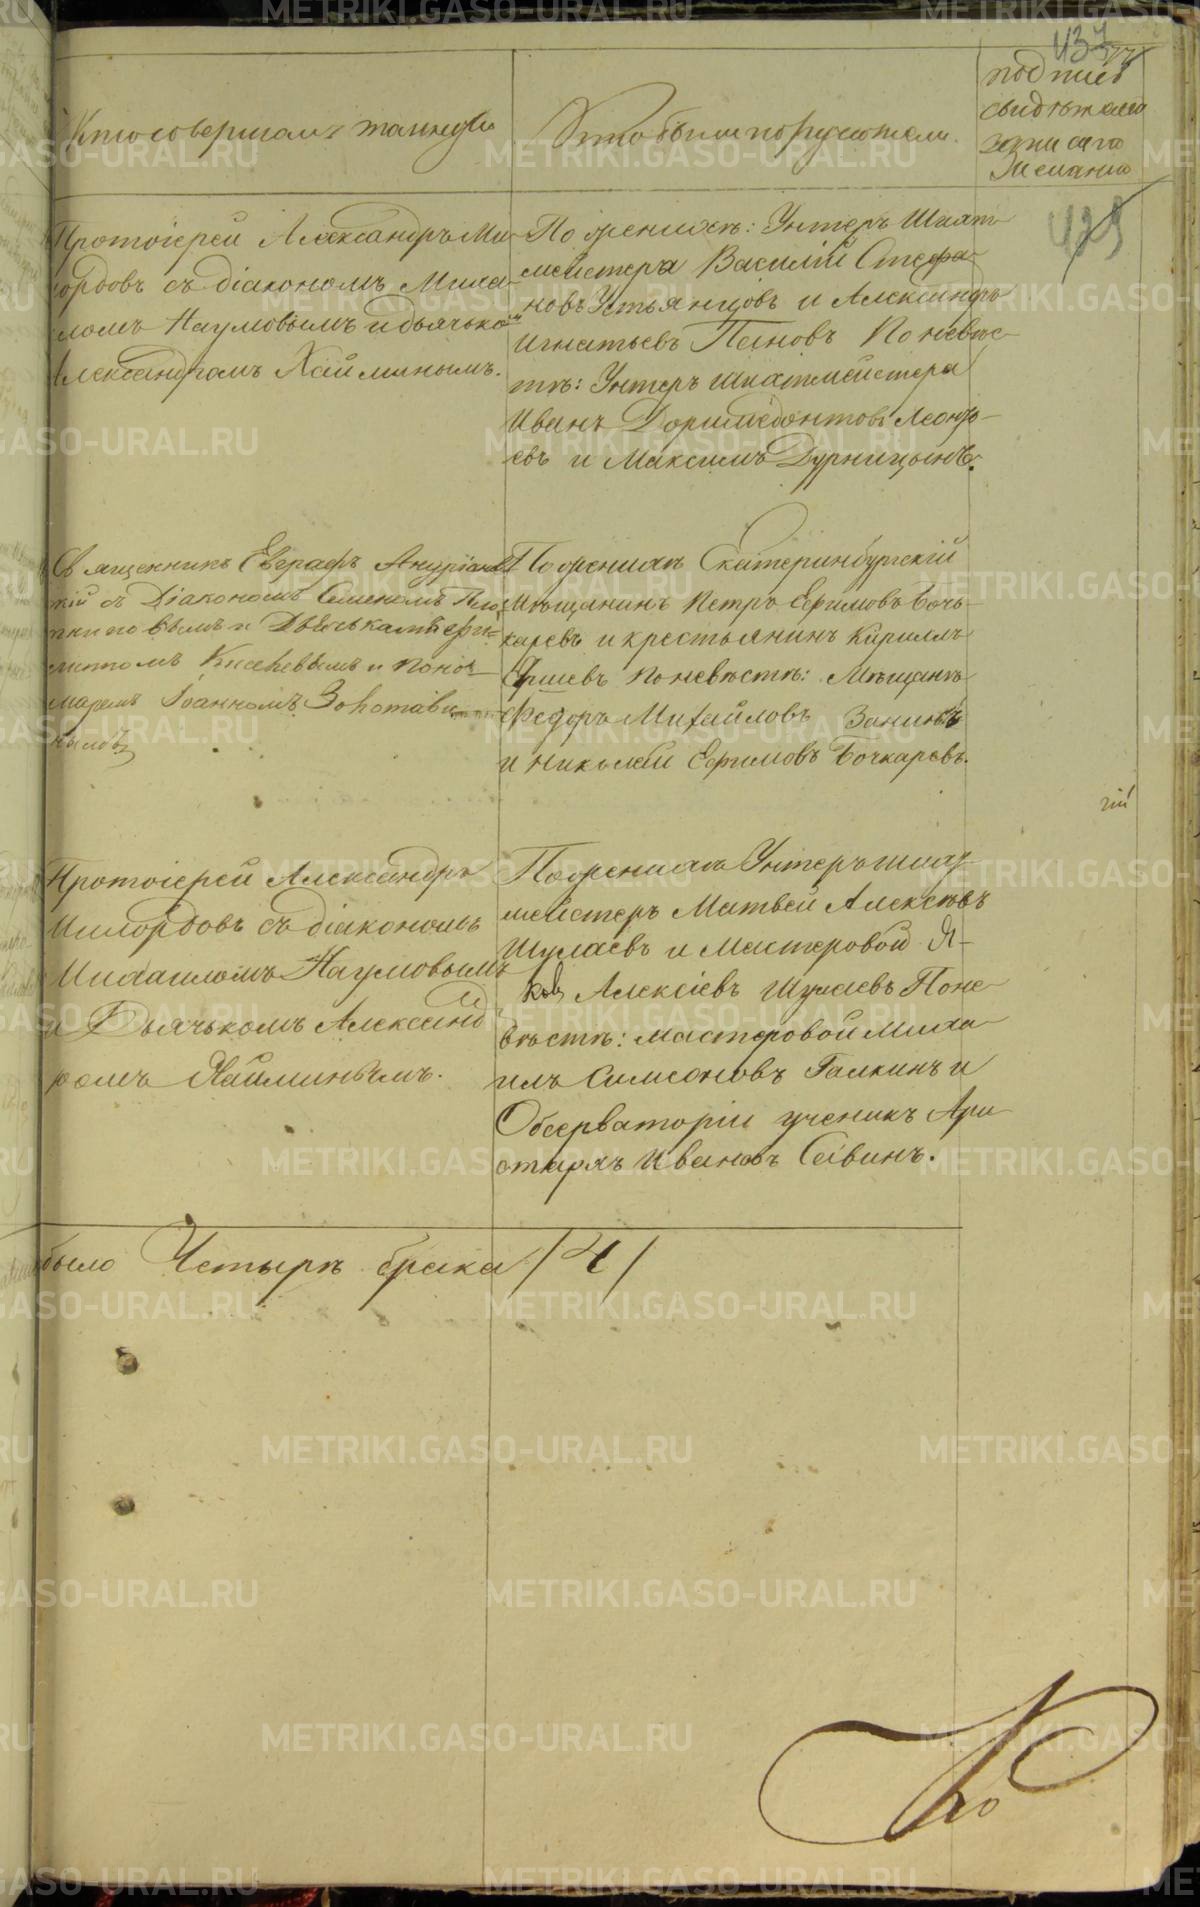 437
Кто совершалъ таинство
Кто были поручители.
подпись
свидѣтелей
записи
Протоіерей Александръ Ми-
лордовъ съ діакономъ Миха-
ломъ Наумовымъ и дьячко
Александромъ Хайминымъ.
По женихѣ: Унтеръ Шихт-
мейстера Василій Стефа-
новъ Устьянцовъ и Александръ
Игнатьевъ Пановъ По невѣс-
тѣ: Унтеръ Шихтмейстера
Иванъ Доримедонтовъ Леонть-
евъ и Максимъ Дурницынъ.
Священникъ Евграфъ
кій съ Діакономъ Семеномъ
маремъ Іоанномъ
По женихѣ Екатеринбургскій
Мѣщанинъ Петръ Ефимовъ Боч-
каревъ и крестьянинъ Кирилъ
Ершевъ По невѣстѣ: Мѣщанѣ
Федоръ Михайловъ Занинъ
и Николай Ефимовъ Бочкаревъ.
Протоіерей Александръ
Милордовъ съ діакономъ
Михаиломъ Наумовымъ
и Дьячькомъ Александ
ромъ Хайминымъ.
По женихѣ Унтеръ шихт
мейстеръ Матвей Алексѣевъ
Шулаевъ и Мастеровой Я-
ковъ Алексіевъ Шулаевъ По не-
вѣстѣ: мастеровой Миха-
илъ Симеоновъ Галкинъ и
Обсерваторіи ученикъ Ари-
стархъ Ивановъ Савинъ.
было Четырѣ брака /4/
гій
по
METRIKI.GASO-URAL.RU